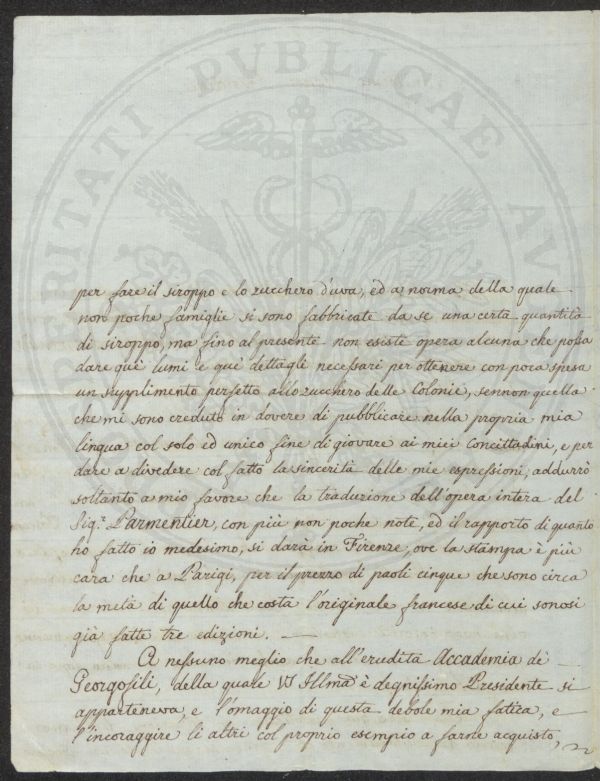 PROSPERITATI PVBLICAE AVGENDAE
per fare il siroppo e lo zucchero d'uva, ed a norma della quale
non poche famiglie si sono fabbricate da se una certa quantità
di siroppo, ma fino al presente non esiste opera alcuna che possa
dare que' lumi e que' dettagli necessari per ottenere con poca spesa
un supplimento perfetto allo zucchero delle Colonie, sennon quella
che mi sono creduto in dovere di pubblicare nella propria mia
lingua col solo ed unico fine di giovare ai miei Concittadini, e per
dare a divedere col fatto la sincerità delle mie espressioni, addurrò
soltanto a mio favore che la traduzione dell'opera intera del
Sig.r Parmentier, con più non poche note, ed il rapporto di quanto
ho fatto io medesimo, si darà in Firenze, ove la stampa è più
cara che a Parigi, per il prezzo di paoli cinque che sono circa
la metà di quello che costa l'originale francese di cui sonosi
già fatte tre edizioni. —
A nessuno meglio che all'erudita Accademia de
Georgofili, della quale VS Illma è degnissimo Presidente si
apparteneva, e l'omaggio di questa debole mia fatica, e
l'incoraggire li altri col proprio esempio a farne acquisto,